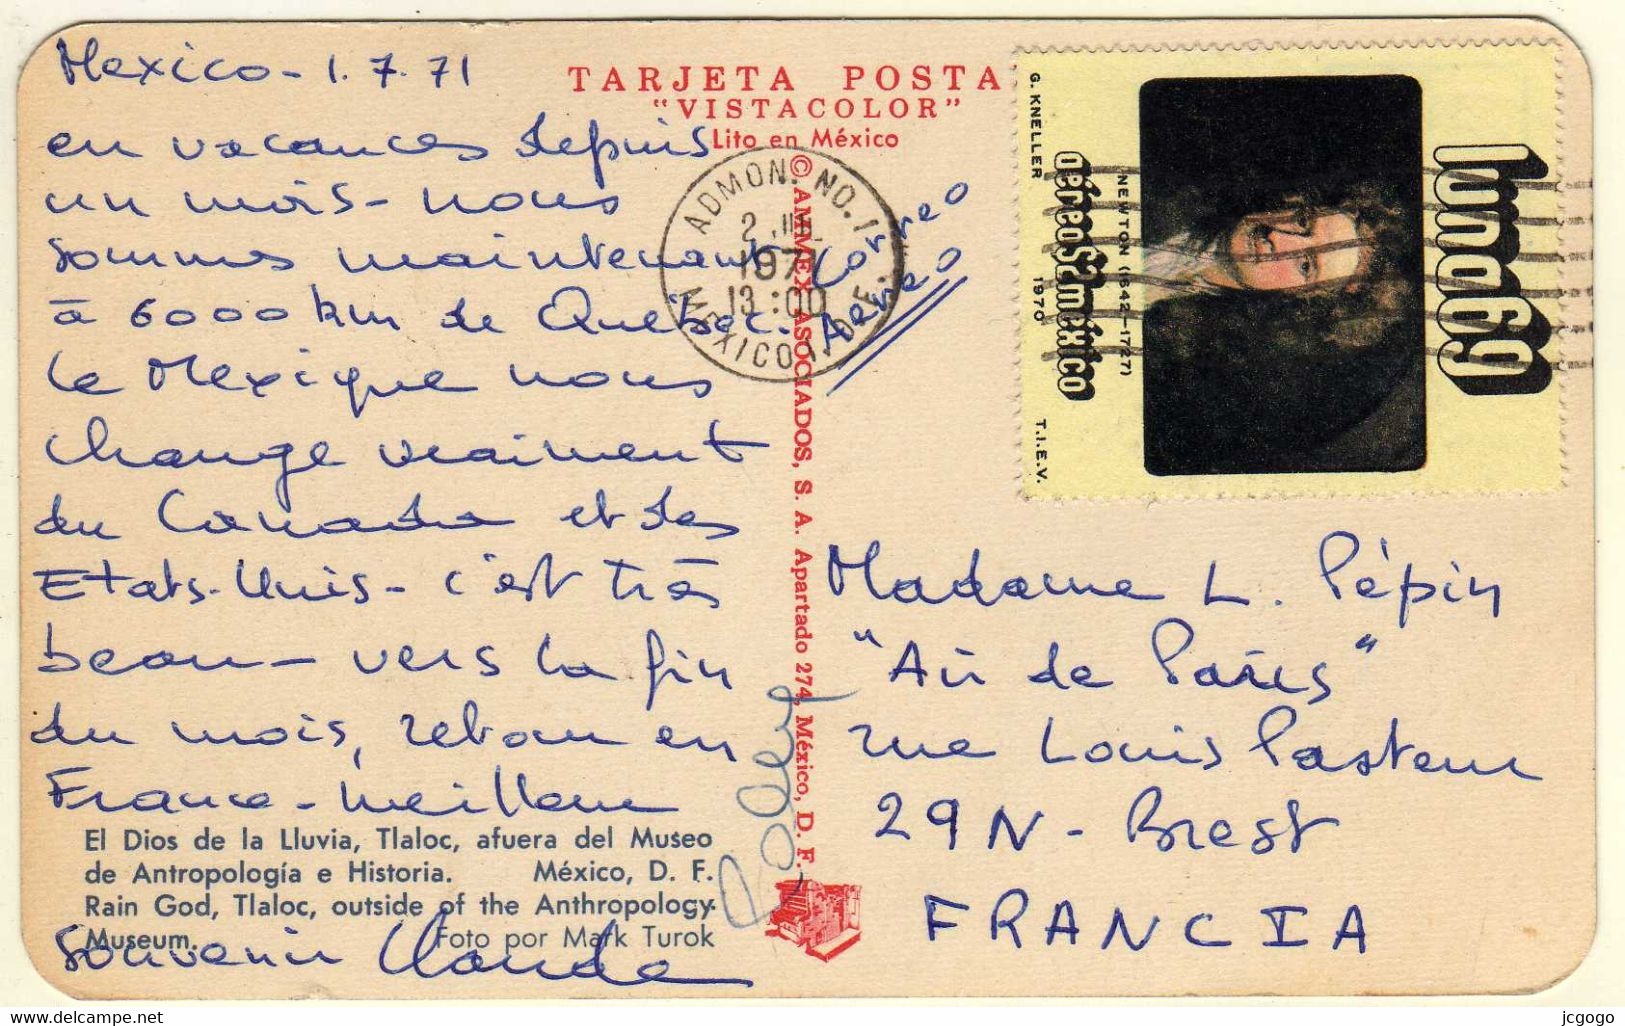 Mexico - 1.7.71
en vacances depuis
un mois - nous
sommes maintenant
à 6000 km de Québec.
Le Mexique nous
change vraiment
du Canada et des
Etats-Unis - c'est très
beau - vers la fin
du mois, retour en
France - Meilleur
souvenir Claude
El Dios de la Lluvia, Tlaloc, afuera del Museo
de Antropología e Historia. México, D. F.
Rain God, Tlaloc, outside of the Anthropology
Museum. Foto por Mark Turok
TARJETA POSTA
"VISTACOLOR"
Lito en México
© AMMEX ASOCIADOS, S. A. Apartado 274, México, D. F.
ADMON. NO. 1
2 JUL.
1971
13:00
MEXICO, D.F.
Correo
Aereo
G. KNELLER 1970 T.I.E.V.
aéreo $2 méxico
NEWTON (1642-1727)
luna69
Madame L. Pépin
"Air de Paris"
rue Louis Pasteur
29N - Brest
FRANCIA
jcgogo
© Delcampe.net